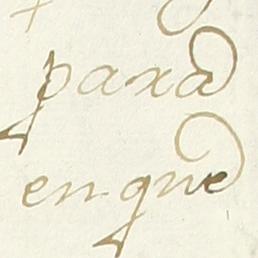 para
en que